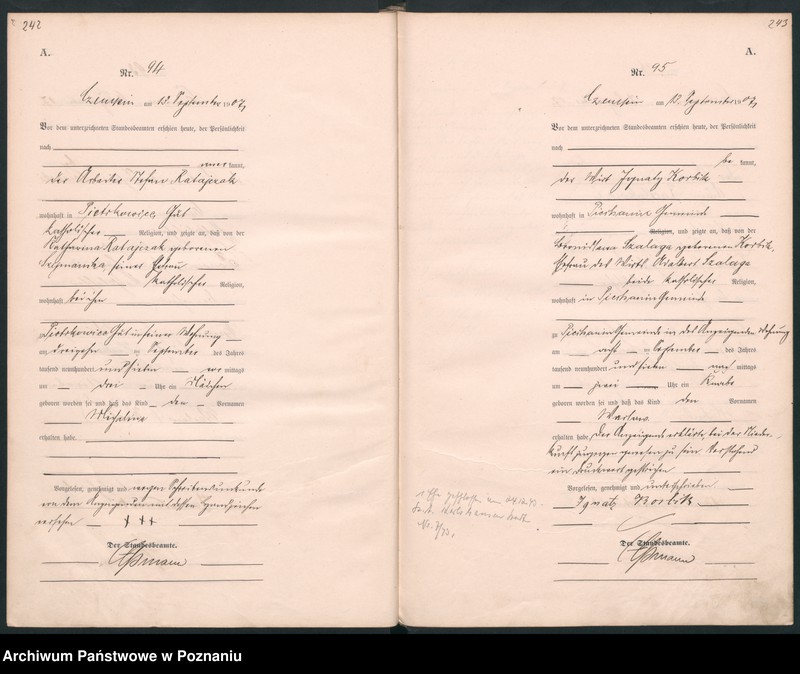 242
A.
Nr. 94
am 13. September 1907
Vor dem unterzeichneten Standesbeamten erschien heute, der Persönlichkeit
nach
kannt,
der Arbeiter Stefan Ratajczak
wohnhaft in Pietrkowice Gut
katholischer Religion, und zeigte an, daß von der
Katharina Ratajczak geborenen
seiner Ehefrau
katholischer Religion,
wohnhaft bei ihm
zu Pietrkowice Gut in seiner Wohnung
am dreizehn ten September des Jahres
tausend neunhundert und sieben vor mittags
um drei Uhr ein Mädchen
geboren worden sei und daß das Kind den Vornamen
Michalina
erhalten habe.
Vorgelesen, genehmigt und wegen Schreibensunkunde
von dem Anzeigenden mit dessen Handzeichen
versehen + + +
Der Standesbeamte.
243
A.
Nr. 95
am 13. September 1907
Vor dem unterzeichneten Standesbeamten erschien heute, der Persönlichkeit
nach
be kannt,
der Wirt Ignatz Korbik
wohnhaft in Gemeinde
Religion, und zeigte an, daß von der
Bronislawa Szalaga, geborenen Korbik,
Ehefrau des Wirts Adalbert Szalaga
beide katholischer Religion,
wohnhaft in Gemeinde
zu Gemeinde in des Anzeigenden Wohnung
am acht ten September des Jahres
tausend neunhundert und sieben nach mittags
um zwei Uhr ein Knabe
geboren worden sei und daß das Kind den Vornamen
erhalten habe. Der Anzeigende erklärte, bei der Nieder-
kunft zugegen gewesen zu sein. Vorstehend
ein Druckwort gestrichen
Vorgelesen, genehmigt und unterschrieben
Ignatz Korbik
Der Standesbeamte.
Archiwum Państwowe w Poznaniu